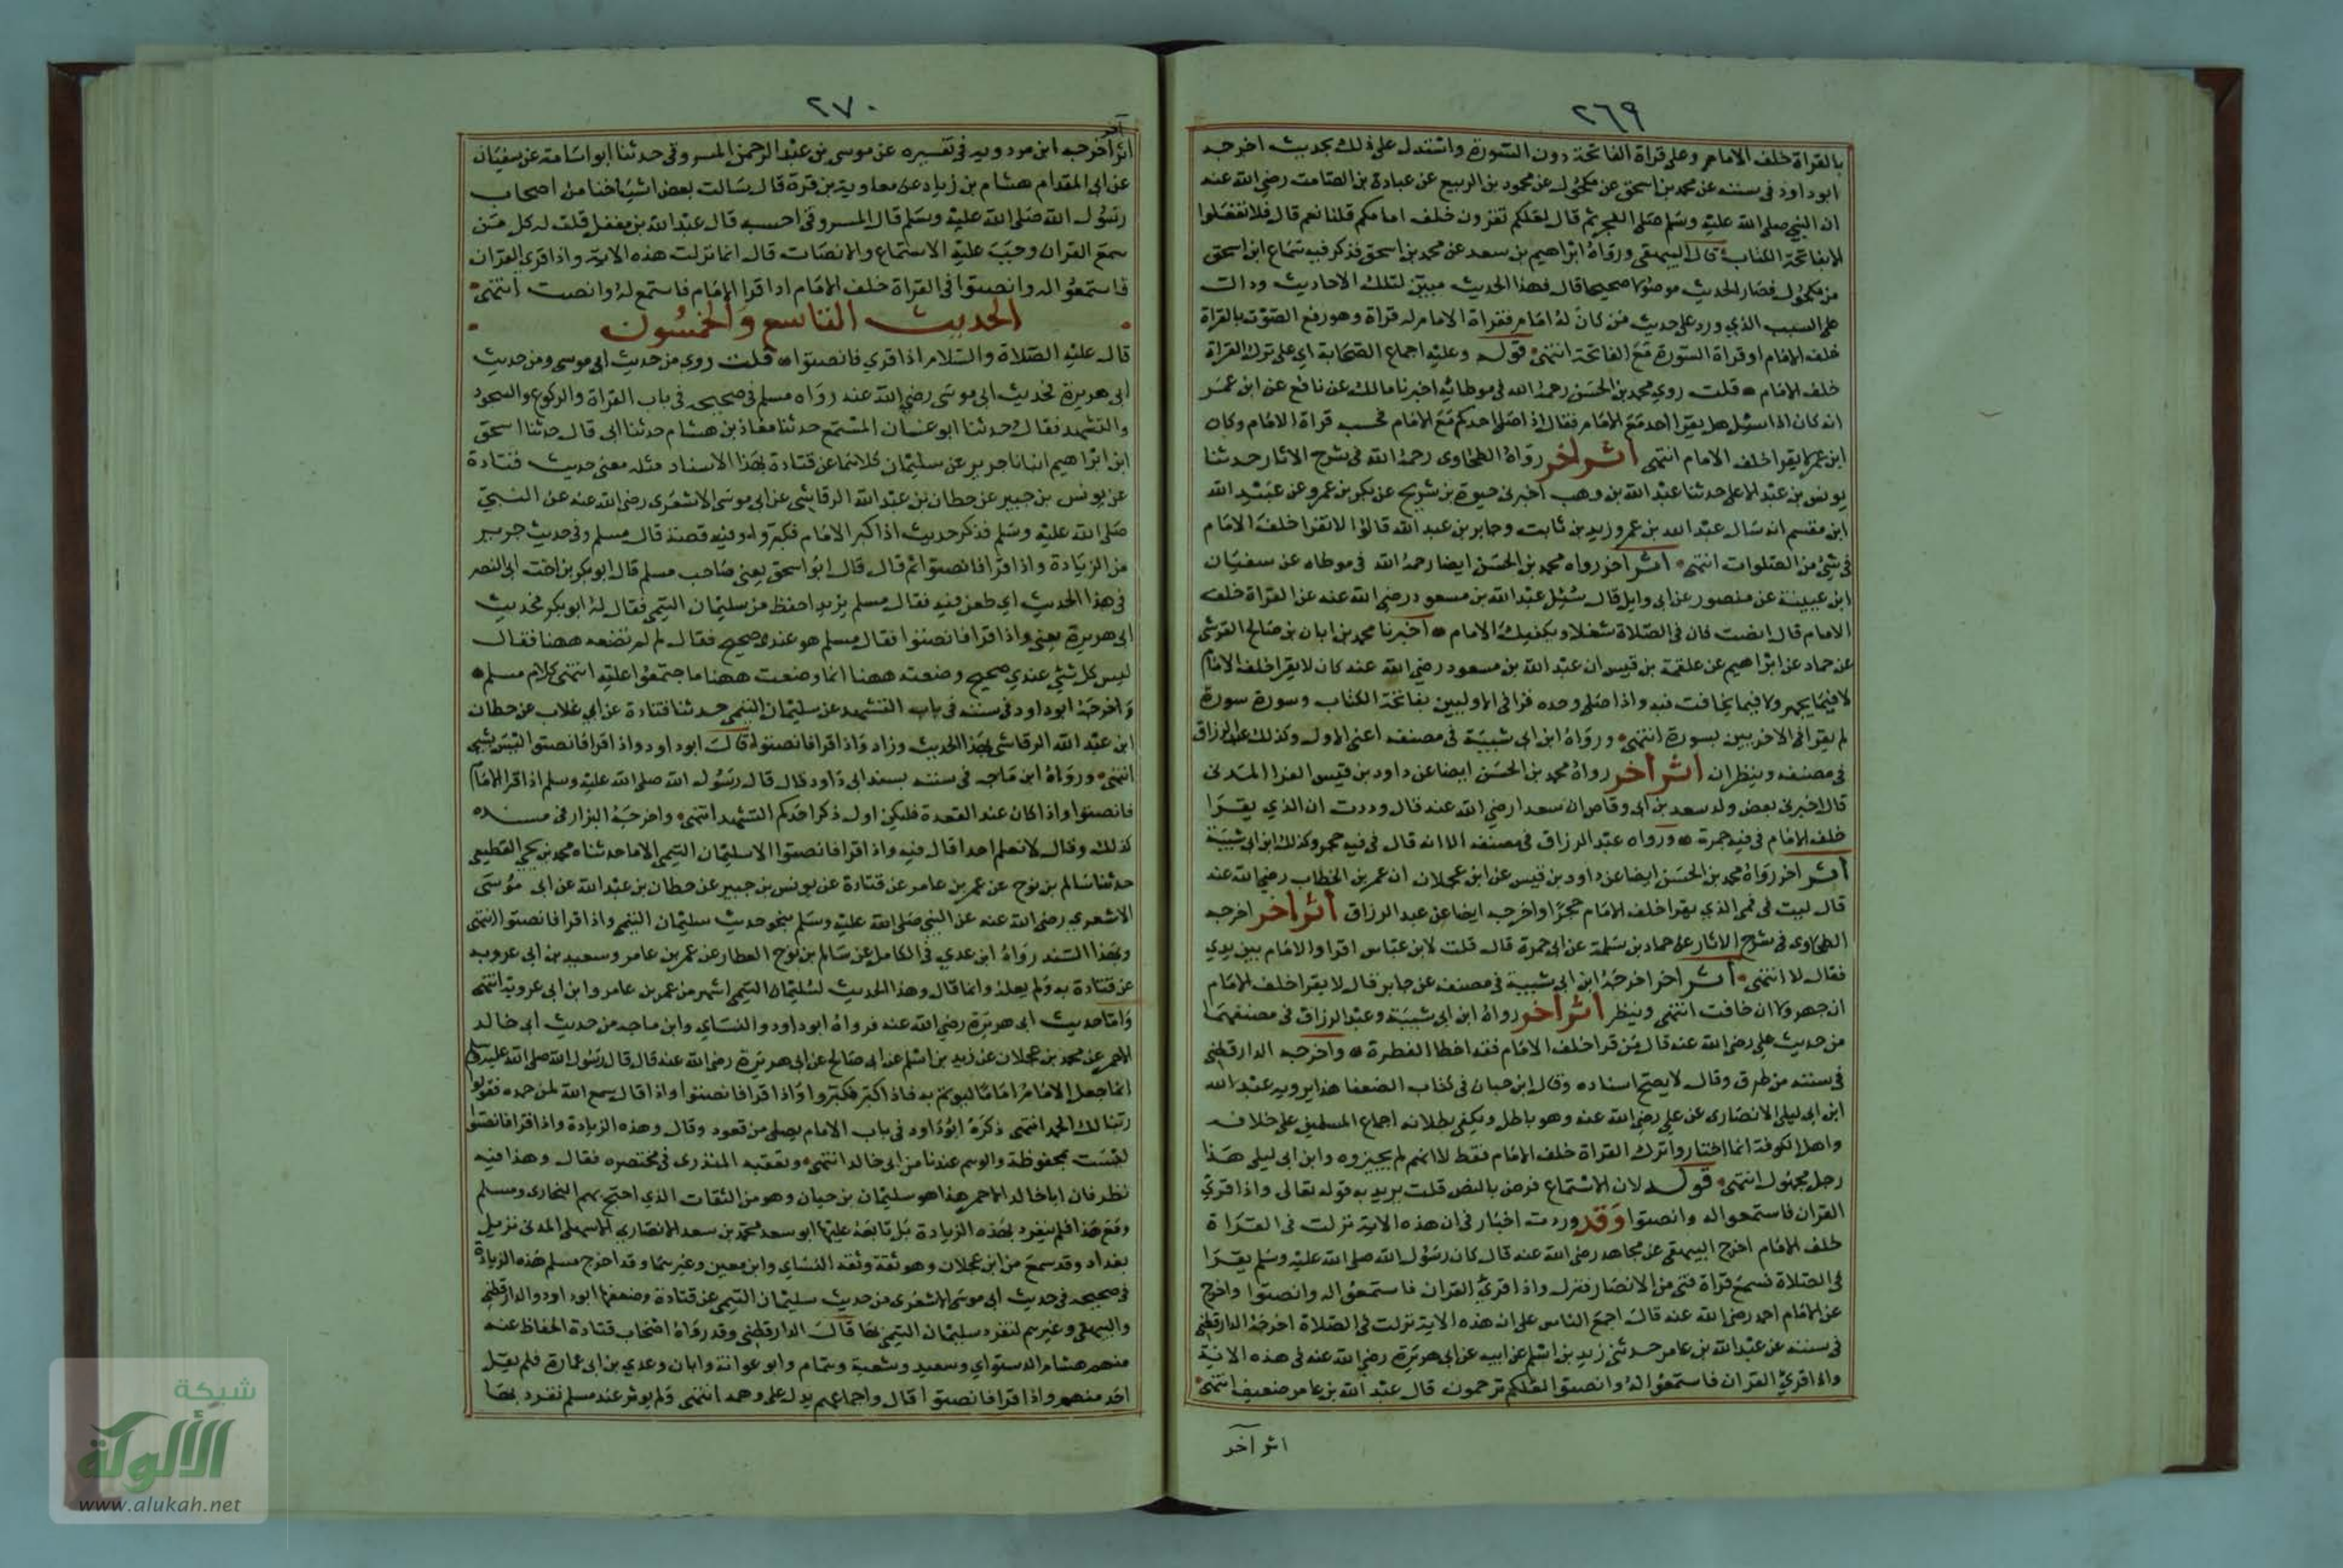 ٢٦٩
بالقراة خلف الامام وعلى قراة الفاتحة دون السورة واستدل على ذلك بحديث اخرجه
ابو داود في سننه عن محمد بن اسحق عن مكحول عن محمود بن الربيع عن عبادة بن الصامت رضي الله عنه
ان النبي صلى الله عليه وسلم صلى الفجر ثم قال لعلكم تقرون خلف امامكم قلنا نعم قال فلا تفعلوا
الا بفاتحة الكتاب قال البيهقي ورواه ابراهيم بن سعد عن محمد بن اسحق فذكر فيه سماع ابن اسحق
من مكحول فصار الحديث موصولا صحيحا قال فهذا الحديث مبين لتلك الاحاديث ودالت
على السبب الذي ورد على حديث من كان له امام فقراة الامام له قراة وهو رفع الصوت بالقراة
خلف الامام او قراة السورة مع الفاتحة انتهى قوله وعليه اجماع الصحابة اي على ترك القراة
خلف الامام قلت روي محمد بن الحسن رحمه الله في موطائه اخبرنا مالك عن نافع عن ابن عمر
انه كان اذا سئل هل يقرا احد مع الامام فقال اذا صلى احدكم مع الامام فحسبه قراة الامام وكان
ابن عمر لا يقرا خلف الامام انتهى اثر اخر رواه الطحاوى رحمه الله في شرح الاثار حدثنا
يونس بن عبد الاعلى حدثنا عبد الله بن وهب اخبرني حيوة بن شريح عن بكر بن عمرو عن عبيد الله
ابن مقسم انه سال عبد الله بن عمر وزيد بن ثابت وجابر بن عبد الله قالوا لا تقرا خلف الامام
في شئ من الصلوات انتهى اثر اخر رواه محمد بن الحسن ايضا رحمه الله في موطاه عن سفيان
ابن عيينة عن منصور عن ابي وايل قال سئل عبد الله بن مسعود رضي الله عنه عن القراة خلف
الامام قال انصت فان في الصلاة شغلا ويكفيك الامام اخبرنا محمد بن ابان بن صالح القرشي
عن حماد عن ابراهيم عن علقمة بن قيس ان عبد الله بن مسعود رضي الله عنه كان لا يقرا خلف الامام
لا فيما يجهر ولا فيما يخافت فيه واذا صلى وحده قرا في الاوليين بفاتحة الكتاب وسورة سورة
لم يقرا في الاخريين بسورة انتهى ورواه ابن ابي شيبة في مصنفه اعني الاول وكذلك عبد الرزاق
في مصنفه وينظران اثر اخر رواه محمد بن الحسن ايضا عن داود بن قيس الفرا المدني
قال اخبرني بعض ولد سعد بن ابي وقاص ان سعدا رضي الله عنه قال وددت ان الذي يقرا
خلف الامام في فيه جمرة ورواه عبد الرزاق في مصنفه الا انه قال في فيه حجر وكذلك ابن ابي شيبة
اثر اخر رواه محمد بن الحسن ايضا عن داود بن قيس عن ابن عجلان ان عمر بن الخطاب رضي الله عنه
قال ليت في فم الذي يقرا خلف الامام حجرا واخرجه ايضا عن عبد الرزاق اثر اخر اخرجه
الطحاوى في شرح الاثار عن حماد بن سلمة عن ابي حمزة قال قلت لابن عباس اقرا والامام بين يدي
فقال لا انتهى اثر اخر اخرجه ابن ابي شيبة في مصنفه عن جابر قال لا يقرا خلف الامام
ان جهر ولا ان خافت انتهى وينظر اثر اخر رواه ابن ابي شيبة وعبد الرزاق في مصنفيهما
من حديث علي رضي الله عنه قال من قرا خلف الامام فقد اخطا الفطرة واخرجه الدارقطني
في سننه من طرق وقال لا يصح اسناده وقال ابن حبان في كتاب الضعفا هذا يرويه عبد الله
ابن ابي ليلى الانصارى عن علي رضي الله عنه وهو باطل ويكفى بطلانه اجماع المسلمين على خلافه
واهل الكوفة انما اختاروا ترك القراة خلف الامام فقط لا انهم لم يجيزوه وابن ابي ليلى هذا
رجل مجهول انتهى قوله لان الاستماع فرض بالنص قلت يريد به قوله تعالى واذا قرئ
القران فاستمعوا له وانصتوا وقد وردت اخبار في ان هذه الاية نزلت في القراة
خلف الامام اخرج البيهقي عن مجاهد رضي الله عنه قال كان رسول الله صلى الله عليه وسلم يقرا
في الصلاة فسمع قراة فتى من الانصار فنزل واذا قرئ القران فاستمعوا له وانصتوا واخرج
عن الامام احمد رضي الله عنه قال اجمع الناس على ان هذه الاية نزلت في الصلاة اخرجه الدارقطني
في سننه عن عبد الله بن عامر حدثني زيد بن اسلم عن ابيه عن ابي هريرة رضي الله عنه في هذه الاية
واذا قرئ القران فاستمعوا له وانصتوا لعلكم ترحمون قال عبد الله بن عامر ضعيف انتهى
اثر آخر
٢٧٠
آخر
اثر اخرجه ابن مردويه في تفسيره عن موسى بن عبد الرحمن المسروقي حدثنا ابو اسامة عن سفيان
عن ابي المقدام هشام بن زياد عن معاوية بن قرة قال سالت بعض اشياخنا من اصحاب
رسول الله صلى الله عليه وسلم قال المسروقي احسبه قال عبد الله بن مغفل قلت له كل من
سمع القران وجب عليه الاستماع والانصات قال انما نزلت هذه الاية واذا قرى القران
فاستمعوا له وانصتوا في القراة خلف الامام اذا قرا الامام فاستمع له وانصت انتهى
الحديث التاسع والخمسون
قال عليه الصلاة والسلام اذا قري فانصتوا قلت روي من حديث ابي موسى ومن حديث
ابي هريرة فحديث ابي موسى رضي الله عنه رواه مسلم في صحيحه في باب القراة والركوع والسجود
والتشهد فقال وحدثنا ابو غسان المسمع حدثنا معاذ بن هشام حدثنا ابي قال حدثنا اسحق
ابن ابراهيم انبانا جرير عن سليمان كلاهما عن قتادة بهذا الاسناد مثله معنى حديث قتادة
عن يونس بن جبير عن حطان بن عبد الله الرقاشي عن ابي موسى الاشعرى رضي الله عنه عن النبي
صلى الله عليه وسلم فذكر حديث اذا كبر الامام فكبروا وفيه قصة قال مسلم وفي حديث جرير
من الزيادة واذا قرا فانصتوا ثم قال قال ابو اسحق يعني صاحب مسلم قال ابو بكر بن اخت ابي النصر
في هذا الحديث اي طعن فيه فقال مسلم يزيد احفظ من سليمان التيمي فقال له ابو بكر فحديث
ابي هريرة يعني واذا قرا فانصتوا فقال مسلم هو عندي صحيح فقال لم لم تضعه ههنا فقال
ليس كل شئي عندي صحيح وضعته ههنا انما وضعت ههنا ما اجتمعوا عليه انتهى كلام مسلم
واخرجه ابو داود في سننه في باب التشهد عن سليمان التيمي حدثنا قتادة عن ابي غلاب عن حطان
ابن عبد الله الرقاشي بهذا الحديث وزاد واذا قرا فانصتوا قال ابو داود واذا قرا فانصتوا ليس بشي
انتهى ورواه ابن ماجه في سننه بسند ابي داود قال قال رسول الله صلى الله عليه وسلم اذا قرا الامام
فانصتوا واذا كان عند القعدة فليكن اول ذكر احدكم التشهد انتهى واخرجه البزار في مسنده
كذلك وقال لا نعلم احدا قال فيه واذا قرا فانصتوا الا سليمان التيمي الا ما حدثناه محمد بن يحي القطيعي
حدثنا سالم بن نوح عن عمر بن عامر عن قتادة عن يونس بن جبير عن حطان بن عبد الله عن ابي موسى
الاشعري رضي الله عنه عن النبي صلى الله عليه وسلم بنحو حديث سليمان التيمي واذا قرا فانصتوا انتهى
وبهذا السند رواه ابن عدي في الكامل عن سالم بن نوح العطار عن عمر بن عامر وسعيد بن ابي عروبه
عن قتادة به ولم يعله وانما قال وهذا الحديث لسليمان التيمي اشهر من عمر بن عامر وابن ابي عروبة انتهى
واما حديث ابي هريرة رضي الله عنه فرواه ابو داود والنساي وابن ماجه من حديث ابي خالد
الاحمر عن محمد بن عجلان عن زيد بن اسلم عن ابي صالح عن ابي هريرة رضي الله عنه قال قال رسول الله صلى الله عليه وسلم
انما جعل الامام اماما ليوتم به فاذا كبر فكبروا واذا قرا فانصتوا واذا قال سمع الله لمن حمده فقولوا
ربنا لك الحمد انتهى ذكره ابو داود في باب الامام يصلي من قعود وقال وهذه الزيادة واذا قرا فانصتوا
ليست بمحفوظة والوهم عندنا من ابي خالد انتهى وتعقبه المنذرى في مختصره فقال وهذا فيه
نظر فان ابا خالد الاحمر هذا هو سليمان بن حيان وهو من الثقات الذي احتج بهم البخارى ومسلم
ومع هذا فلم ينفرد بهذه الزيادة بل تابعه عليها ابو سعد محمد بن سعد الانصاري الاشهلى المدني نزيل
بغداد وقد سمع من ابن عجلان وهو ثقة وثقه النساي وابن معين وغيرهما وقد اخرج مسلم هذه الزيادة
في صحيحه في حديث ابي موسى الاشعرى من حديث سليمان التيمي عن قتادة وضعفها ابو داود والدارقطني
والبيهقي وغيرهم لتفرد سليمان التيمي بها قال الدارقطني وقد رواه اصحاب قتادة الحفاظ عنه
منهم هشام الدستواي وسعيد وشعبة وهمام وابو عوانة وابان وعدي بن ابي عمارة فلم يقل
احد منهم واذا قرا فانصتوا قال واجماعهم يدل على وهمه انتهى ولم يوثر عند مسلم تفرد بها
شبكة
الألوكة
www.alukah.net